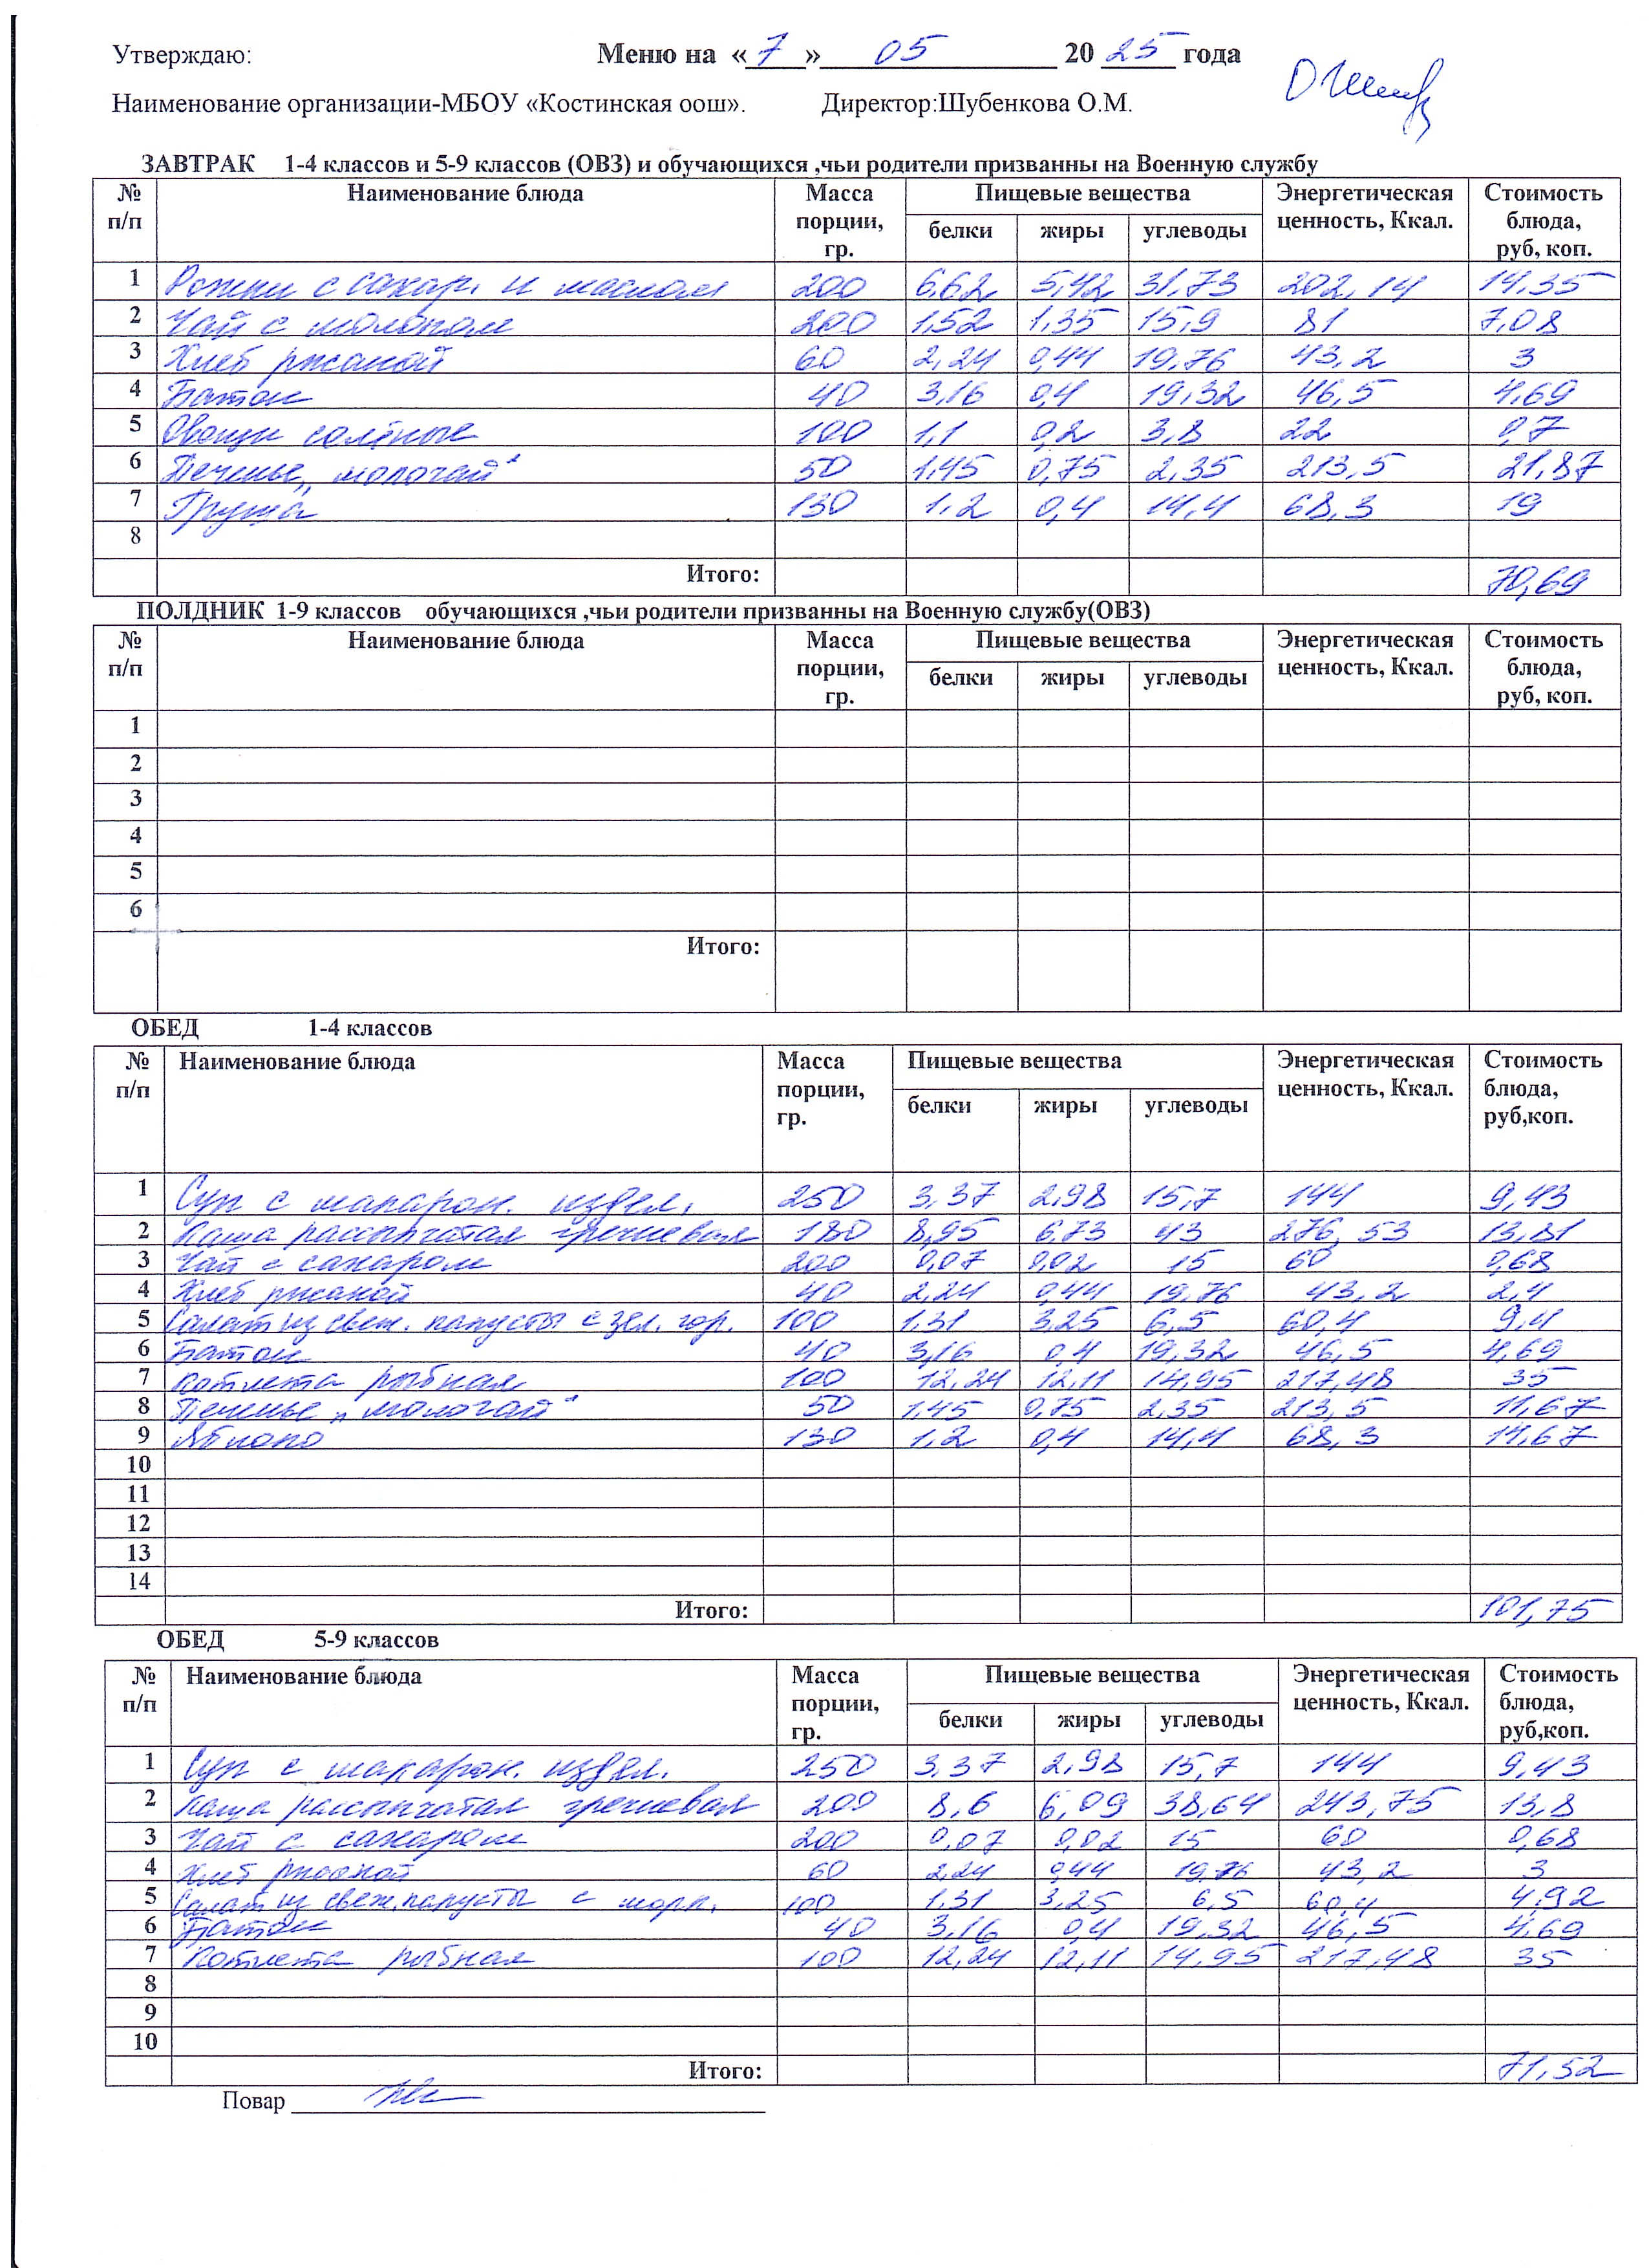 Утверждаю: Меню на «7» 05 2025 года
Наименование организации-МБОУ «Костинская оош». Директор:Шубенкова О.М.
ЗАВТРАК 1-4 классов и 5-9 классов (ОВЗ) и обучающихся ,чьи родители призванны на Военную службу
№ п/п Наименование блюда Масса порции, гр. Пищевые вещества Энергетическая ценность, Ккал. Стоимость блюда, руб, коп.
белки жиры углеводы
1 Рожки с сахар. и маслом 200 6,62 5,42 31,73 202,14 14,35
2 Чай с молоком 200 1,52 1,35 15,9 81 7,08
3 Хлеб ржаной 60 2,24 0,44 19,76 43,2 3
4 Батон 40 3,16 0,4 19,32 46,5 4,69
5 Овощи солёные 100 1,1 0,2 3,8 22 0,7
6 Печенье „молочай" 50 1,45 0,75 2,35 213,5 21,87
7 Груша 130 1,2 0,4 14,4 68,3 19
8
Итого: 70,69
ПОЛДНИК 1-9 классов обучающихся ,чьи родители призванны на Военную службу(ОВЗ)
№ п/п Наименование блюда Масса порции, гр. Пищевые вещества Энергетическая ценность, Ккал. Стоимость блюда, руб, коп.
белки жиры углеводы
1
2
3
4
5
6
Итого:
ОБЕД 1-4 классов
№ п/п Наименование блюда Масса порции, гр. Пищевые вещества Энергетическая ценность, Ккал. Стоимость блюда, руб,коп.
белки жиры углеводы
1 Суп с макарон. издел. 250 3,37 2,98 15,7 144 9,43
2 Каша рассыпчатая гречневая 180 8,95 6,73 43 276,53 13,81
3 Чай с сахаром 200 0,07 0,02 15 60 0,68
4 Хлеб ржаной 40 2,24 0,44 19,76 43,2 2,4
5 Салат из свеж. капусты с зел. гор. 100 1,31 3,25 6,5 60,4 9,4
6 Батон 40 3,16 0,4 19,32 46,5 4,69
7 Котлета рыбная 100 12,24 12,11 14,95 217,48 35
8 Печенье „молочай" 50 1,45 0,75 2,35 213,5 11,67
9 Яблоко 130 1,2 0,4 14,4 68,3 14,67
10
11
12
13
14
Итого: 101,75
ОБЕД 5-9 классов
№ п/п Наименование блюда Масса порции, гр. Пищевые вещества Энергетическая ценность, Ккал. Стоимость блюда, руб,коп.
белки жиры углеводы
1 Суп с макарон. издел. 250 3,37 2,98 15,7 144 9,43
2 Каша рассыпчатая гречневая 200 8,6 6,09 38,64 243,75 13,8
3 Чай с сахаром 200 0,07 0,02 15 60 0,68
4 Хлеб ржаной 60 2,24 0,44 19,76 43,2 3
5 Салат из свеж.капусты с морк. 100 1,31 3,25 6,5 60,4 4,92
6 Батон 40 3,16 0,4 19,32 46,5 4,69
7 Котлета рыбная 100 12,24 12,11 14,95 217,48 35
8
9
10
Итого: 71,52
Повар